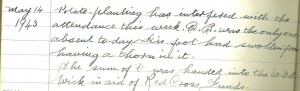 May 14 Potato-planting has interfered with the
1943 attendance this week. R. H. was the only one
absent to-day. His foot had swollen from
having a thorn in it.
The sum of £ was handed into the
Wick in aid of Red Cross Funds.